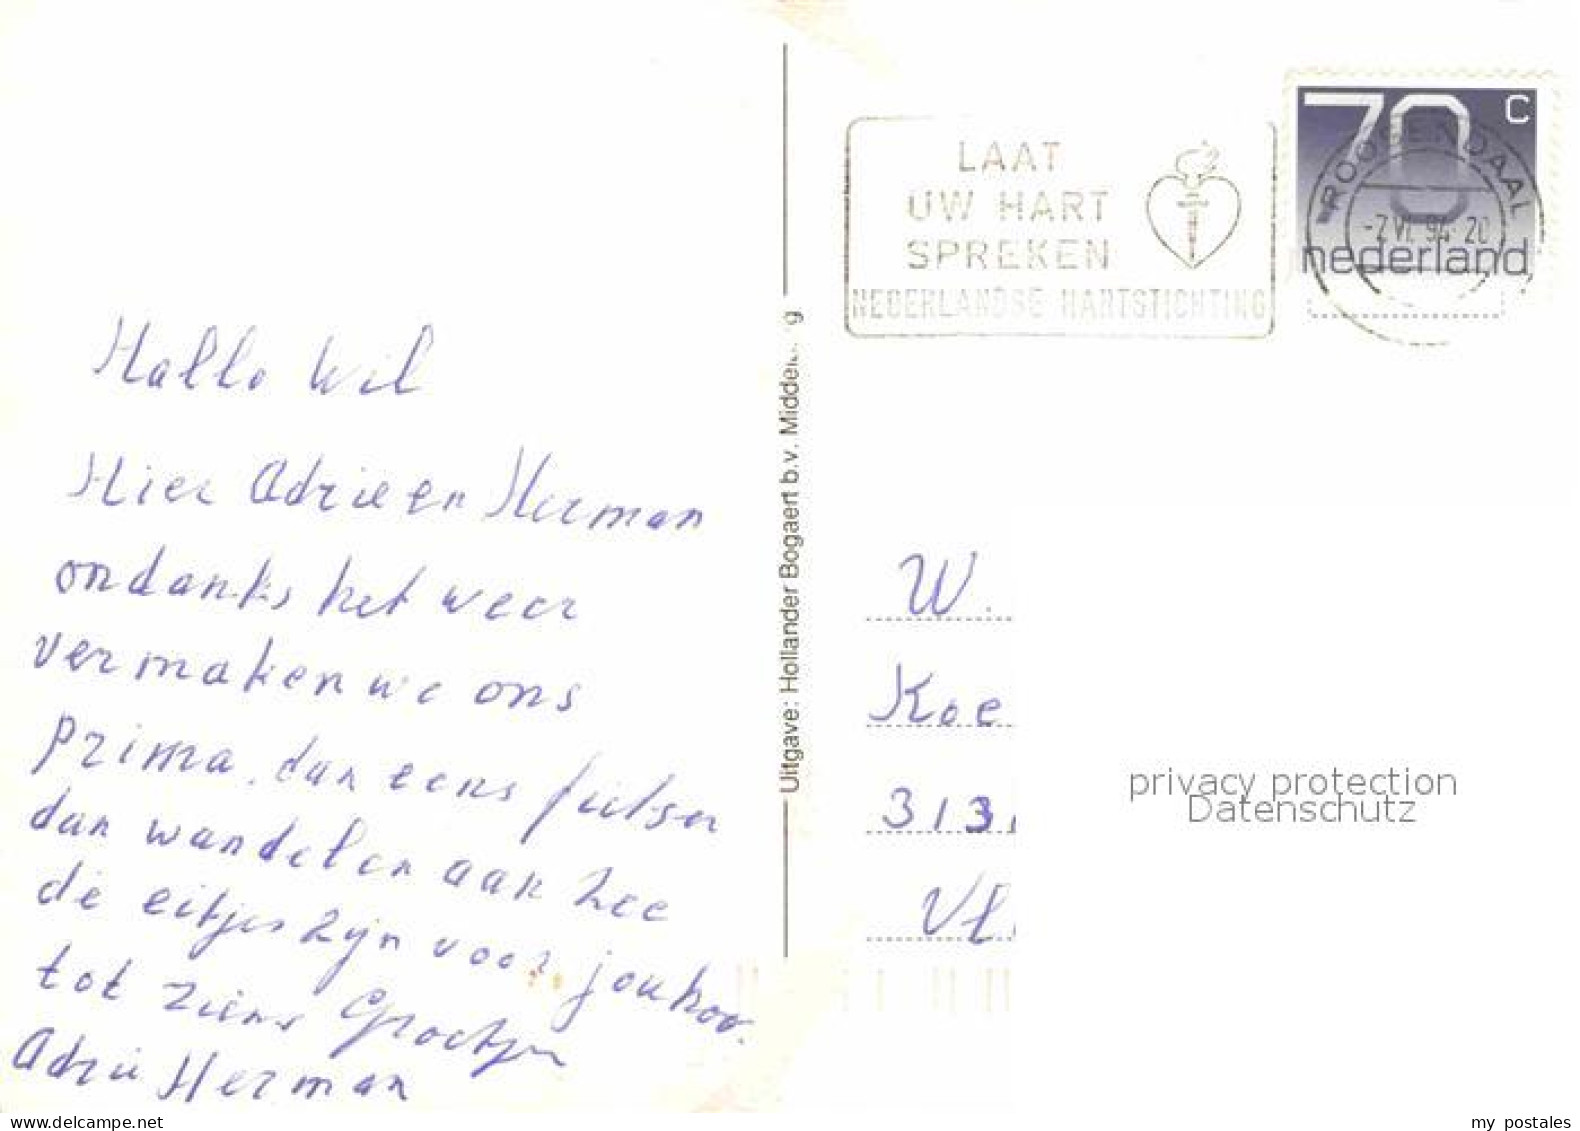 Hallo Wil
Hier Adrie en Herman
ondanks het weer
vermaken we ons
prima, dan eens fietsen
dan wandelen aan zee
de eitjes zijn voor jou hoor.
tot ziens Groetjes
Adrie Herman
Uitgave: Hollander Bogaert b.v.
LAAT
UW HART
SPREKEN
NEDERLANDSE HARTSTICHTING
70 c
nederland
ROOSENDAAL
W.
Koe
313
Vl
privacy protection
Datenschutz
www.delcampe.net
my postales